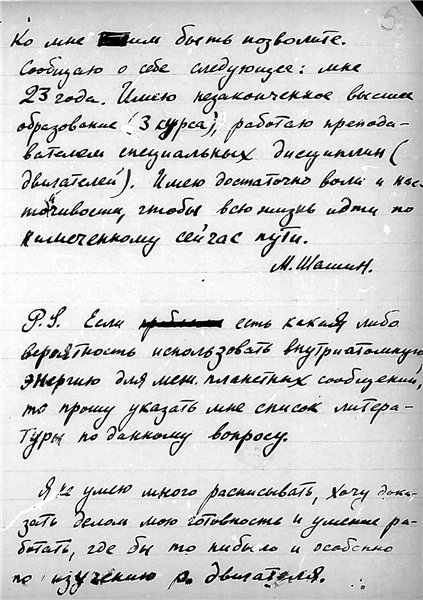 5
Ко мне им быть позволите.
Сообщаю о себе следующее: мне
23 года. Имею незаконченное высшее
образование (3 курса), работаю препода-
вателем специальных дисциплин (
двигателей). Имею достаточно воли и нас-
тойчивости, чтобы всю жизнь идти по
намеченному сейчас пути.
М. Шашин.
P.S. Если есть какая либо
вероятность использовать внутриатомную
энергию для меж. планетных сообщений,
то прошу указать мне список литера-
туры по данному вопросу.
Я не умею много расписывать, хочу дока-
зать делом мою готовность и умение ра-
ботать, где бы то нибыло и особенно
по изучению р. двигателя.